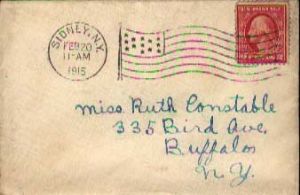 SIDNEY, N.Y.
FEB 20
11-AM
1915
Miss Ruth Constable
335 Bird Ave.
Buffalo
N.Y.